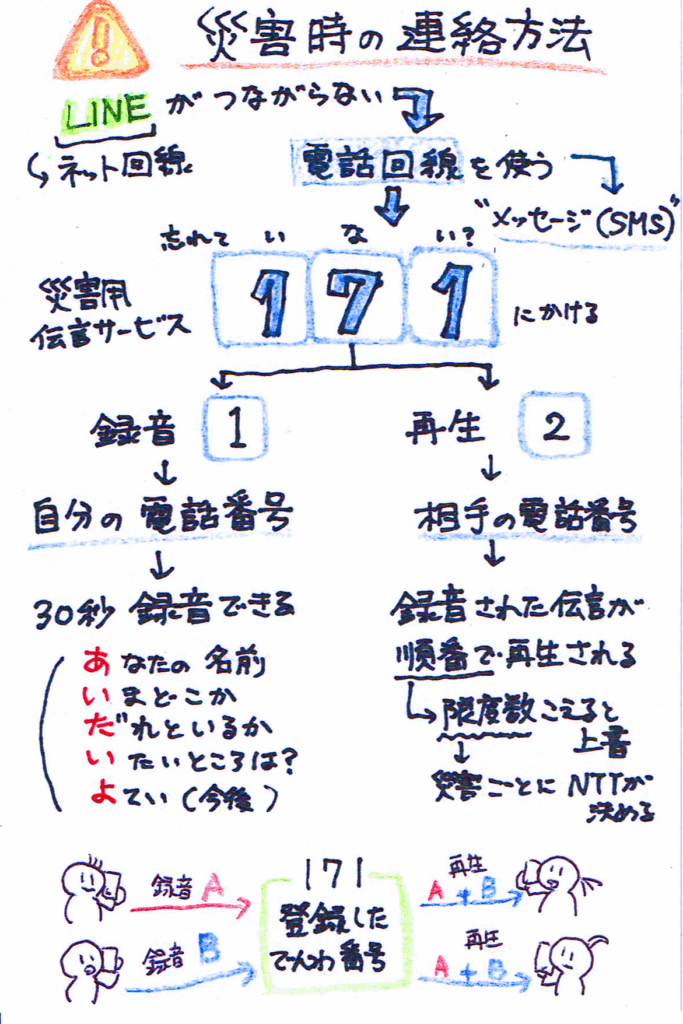 災害時の連絡方法
LINEがつながらない
ネット回線
電話回線を使う
"メッセージ(SMS)"
忘れて い な い?
災害用
伝言サービス
171
にかける
録音 1
再生 2
自分の電話番号
相手の電話番号
30秒 録音できる
あなたの名前
いまどこか
だれといるか
いたいところは?
よてい(今後)
録音された伝言が
順番で再生される
限度数こえると
上書
災害ごとにNTTが
決める
録音A
録音B
171
登録した
でんわ番号
再生
A+B
再生
A+B